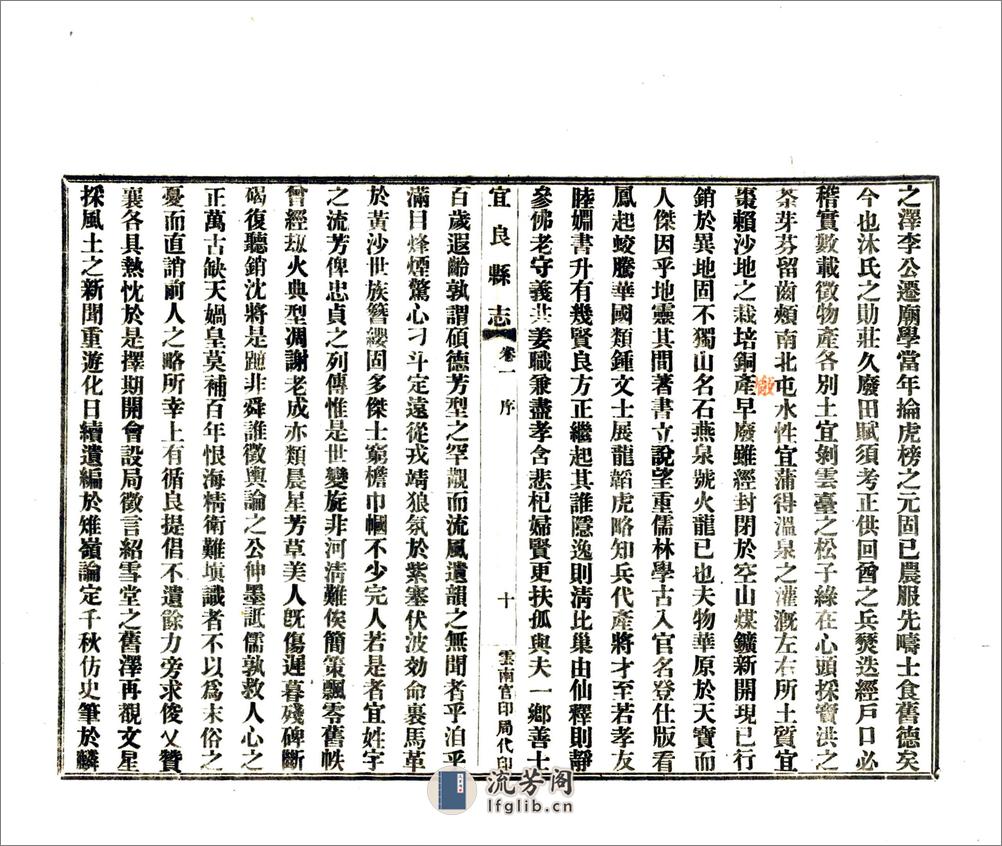 之澤李公遷廟學當年掄虎榜之元固已農服先疇士食舊德矣
今也沐氏之勛莊久廢田賦須考正供回酋之兵燹迭經戶口必
稽實數載徵物產各別土宜剝雲臺之松子綠在心頭採寶洪之
茶芽芬留齒頰南北屯水性宜蒲得溫泉之灌溉左右所土質宜
棗賴沙地之栽培銅產早廢雖經封閉於空山煤鑛新開現已行
銷於異地固不獨山名石燕泉號火龍已也夫物華原於天寶而
人傑因乎地靈其間著書立說望重儒林學古入官名登仕版看
鳳起蛟騰華國類鍾文士展龍韜虎略知兵代產將才至若孝友
睦婣書升有幾賢良方正繼起其誰隱逸則清比巢由仙釋則靜
參佛老守義共姜職兼盡孝含悲杞婦賢更扶孤與夫一鄉善士
宜良縣志 卷一 序 十 雲南官印局代印
百歲遐齡孰謂碩德芳型之罕覯而流風遺韻之無聞者乎洎乎
滿目烽煙驚心刁斗定遠從戎靖狼氛於紫塞伏波効命裹馬革
於黃沙世族簪纓固多傑士窮檐巾幗不少完人若是者宜姓字
之流芳俾忠貞之列傳惟是世變旋非河清難俟簡策飄零舊帙
曾經刼火典型凋謝老成亦類晨星芳草美人旣傷遲暮殘碑斷
碣復聽銷沈將是蹠非舜誰徵輿論之公伸墨詆儒孰救人心之
正萬古缺天媧皇莫補百年恨海精衛難塡識者不以爲末俗之
憂而直誚前人之略所幸上有循良提倡不遺餘力旁求俊乂贊
襄各具熱忱於是擇期開會設局徵言紹雪堂之舊澤再覩文星
採風土之新聞重遊化日續遺編於雉嶺論定千秋仿史筆於麟
流芳阁
lfglib.cn